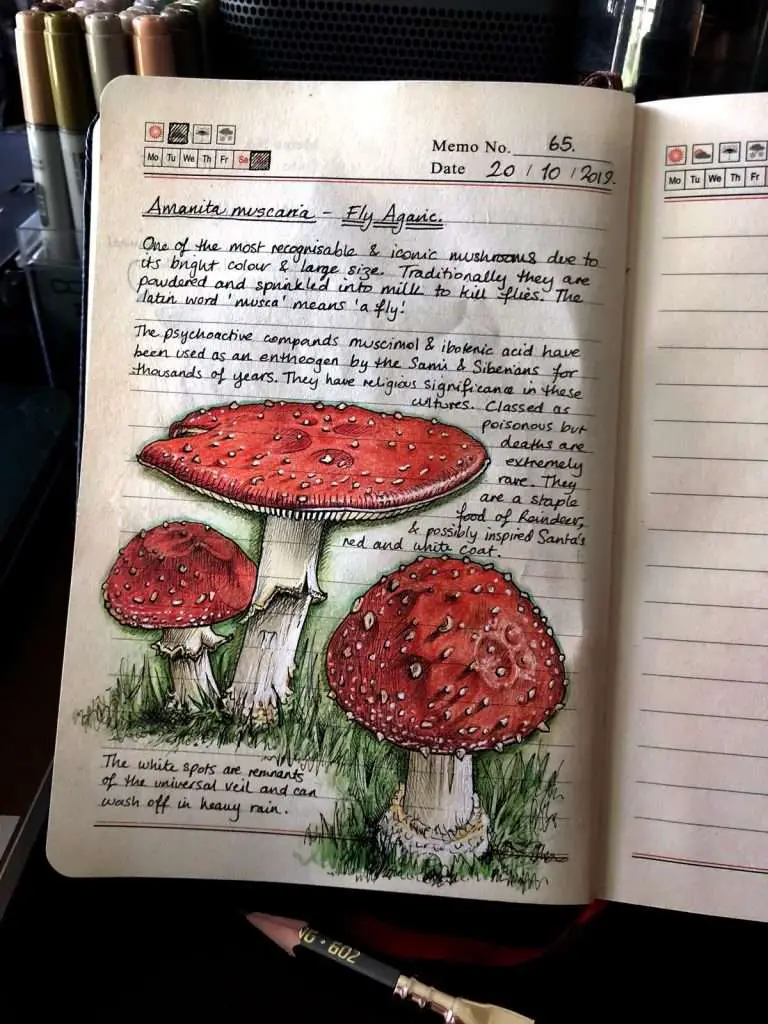 Memo No. 65.
Mo Tu We Th Fr Sa
Date 20 / 10 / 2019.
Mo Tu We Th Fr
Amanita muscaria - Fly Agaric.
One of the most recognisable & iconic mushrooms due to
its bright colour & large size. Traditionally they are
powdered and sprinkled into milk to kill flies. The
latin word 'musca' means 'a fly'.
The psychoactive compounds muscimol & ibotenic acid have
been used as an entheogen by the Samis & Siberians for
thousands of years. They have religious significance in these
cultures. Classed as
poisonous but
deaths are
extremely
rare. They
are a staple
food of Reindeer,
& possibly inspired Santa's
red and white coat.
The white spots are remnants
of the universal veil and can
wash off in heavy rain.
NG • 602